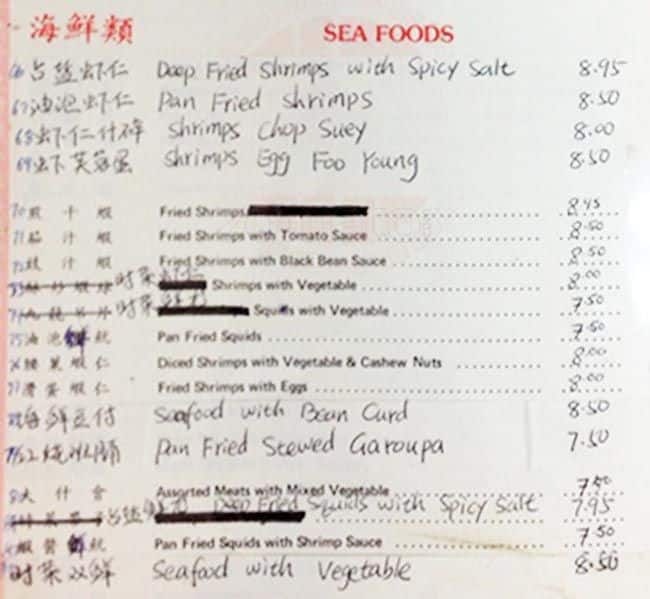 海鮮類 SEA FOODS
虾仁 Deep Fried Shrimps with Spicy Salt 8.95
67 油泡虾仁 Pan Fried shrimps 8.50
68 虾仁什碎 Shrimps Chop Suey 8.00
69 虾芙蓉蛋 Shrimps Egg Foo Young 8.50
70 煎干蝦 Fried Shrimps 8.95
71 茄汁蝦 Fried Shrimps with Tomato Sauce 8.50
72 豉汁蝦 Fried Shrimps with Black Bean Sauce 8.50
时菜虾仁 Shrimps with Vegetable 8.00
时菜 Squids with Vegetable 7.50
75 油泡鲜魷 Pan Fried Squids 7.50
76 腰菓蝦仁 Diced Shrimps with Vegetable & Cashew Nuts 8.00
77 滑蛋蝦仁 Fried Shrimps with Eggs 8.00
海鲜豆付 Seafood with Bean Curd 8.50
红烧 Pan Fried Stewed Garoupa 7.50
大什會 Assorted Meats with Mixed Vegetable 7.50
Deep Fried Squids with Spicy Salt 7.95
蝦醬鲜魷 Pan Fried Squids with Shrimp Sauce 7.50
时菜双鲜 Seafood with Vegetable 8.50